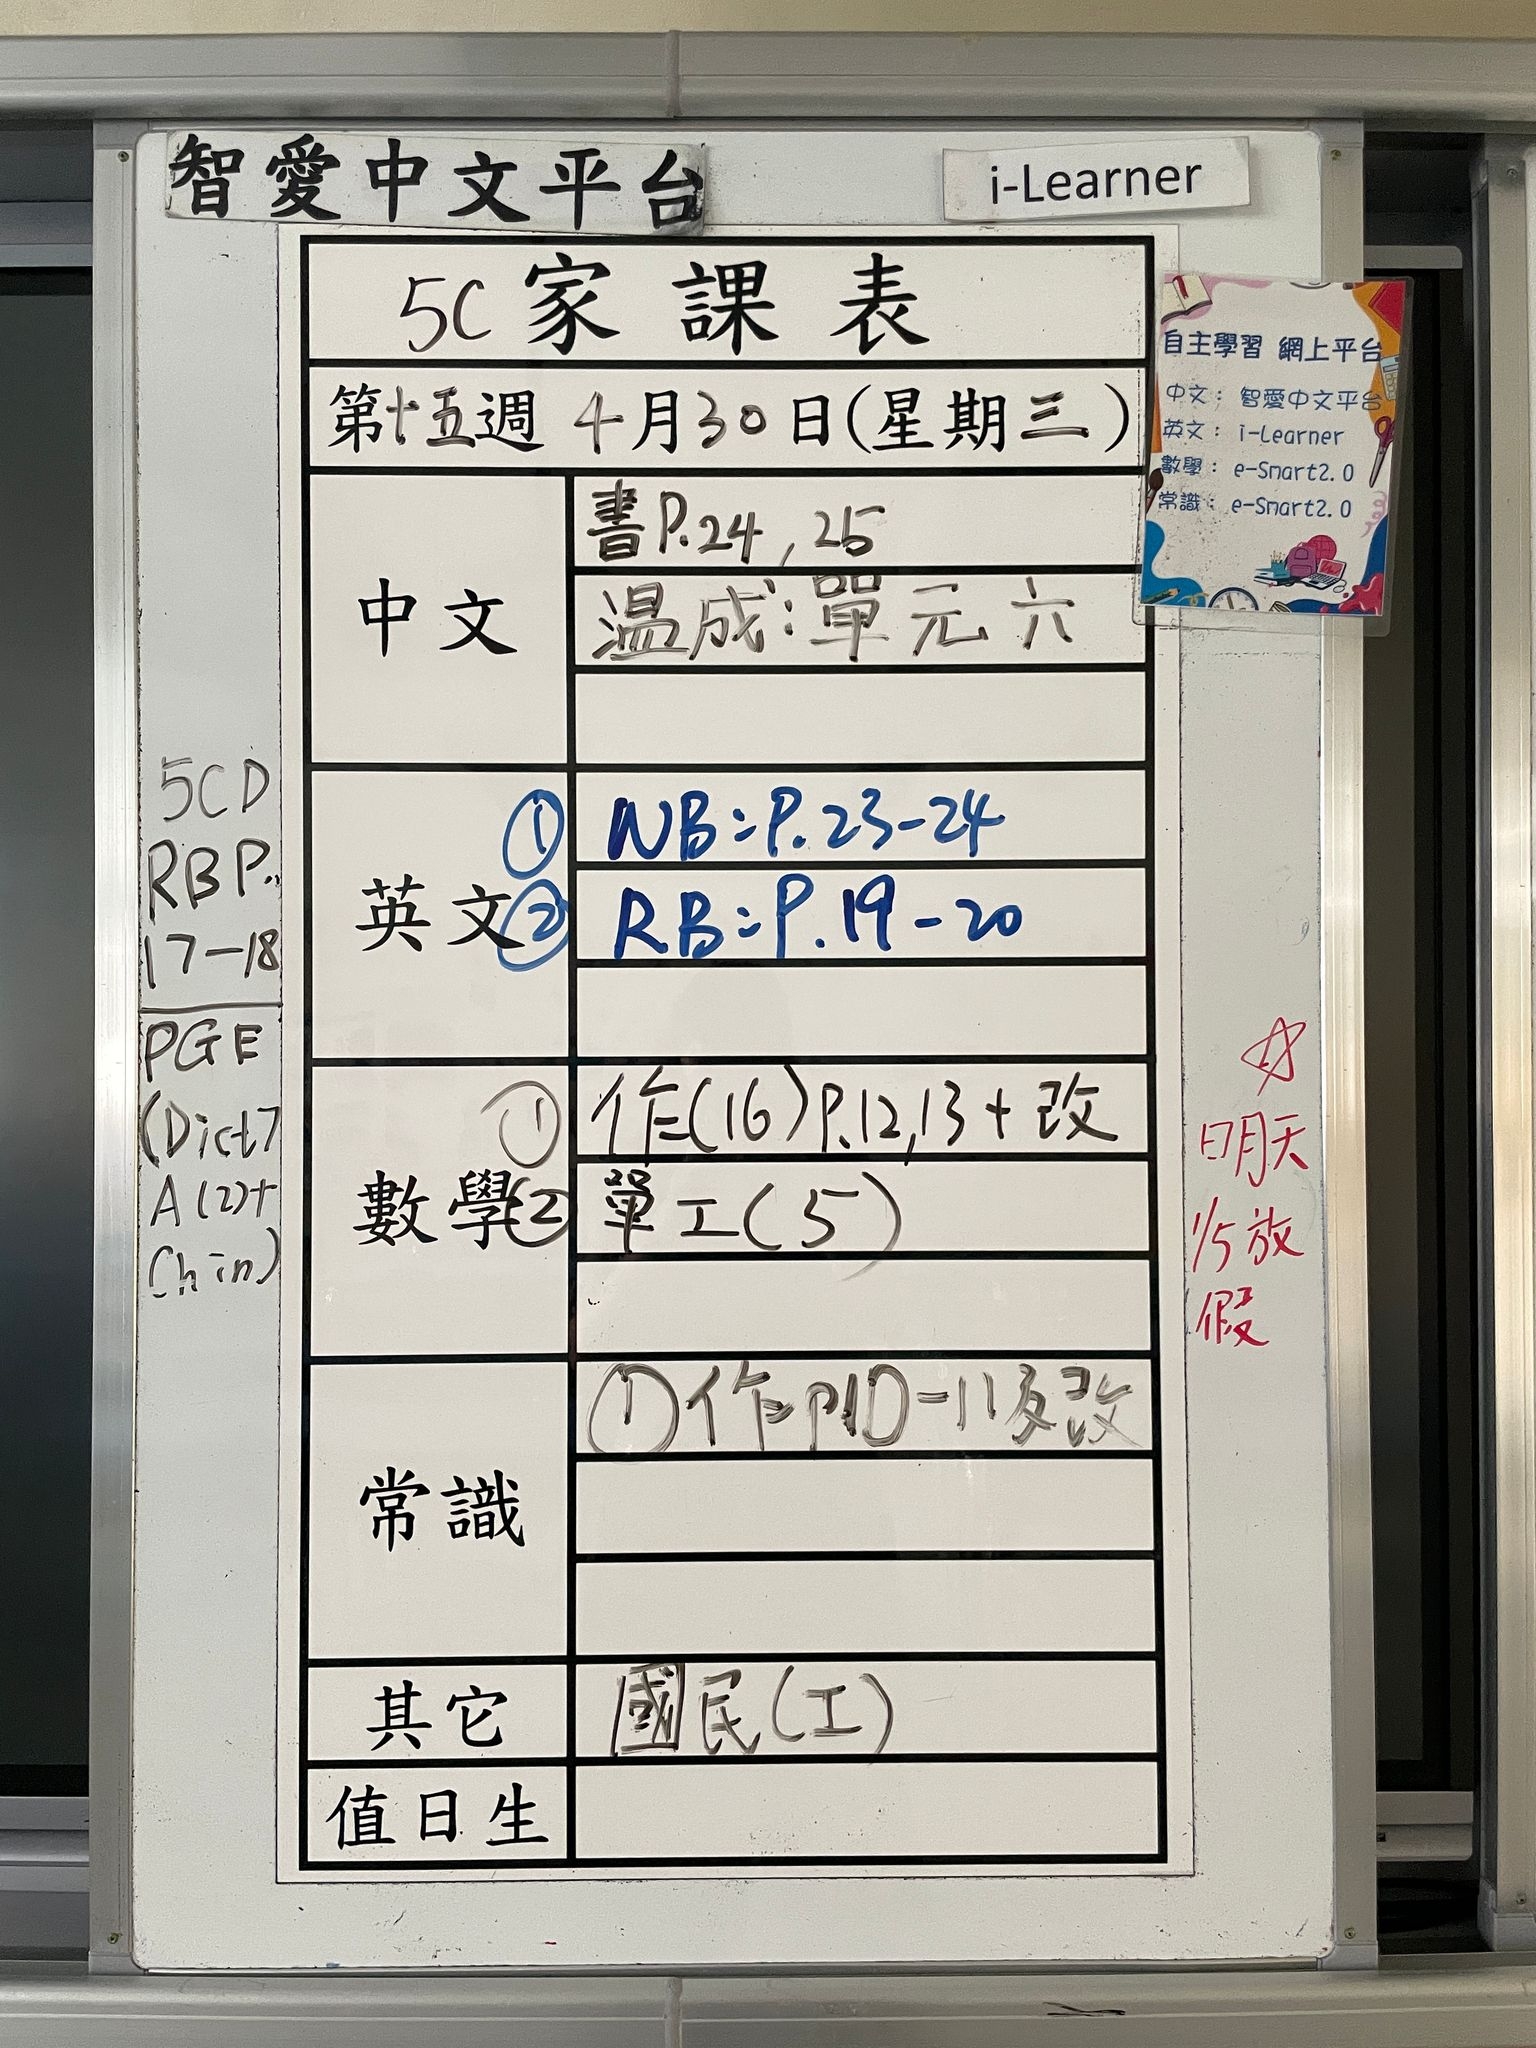 智愛中文平台
i-Learner
5C 家課表
第十五週 4月30日(星期三)
自主學習 網上平台
中文：智愛中文平台
英文：i-Learner
數學：e-Smart2.0
常識：e-Smart2.0
中文
書P.24, 25
温成:單元六
英文
① NB:P.23-24
② RB:P.19-20
數學
① 作(16)P.12,13+改
② 單工(5)
常識
①作P10-11及改
其它
國民(工)
值日生
5CD
RB P.
17-18
PGE
(Dict7
A(2)+
Chin)
☆
明天
1/5放
假